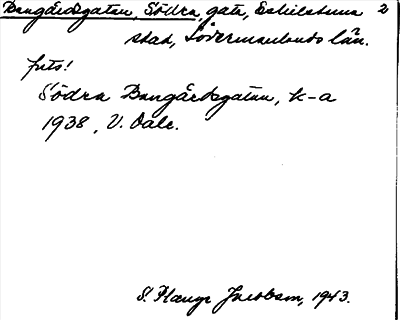 Bangårdsgatan, Södra, gata, Eskilstuna 2
stad, Södermanlands län.
futs!
Södra Bangårdsgatan, k-a
1938, V. Dale.
S. Jacobsson, 1943.